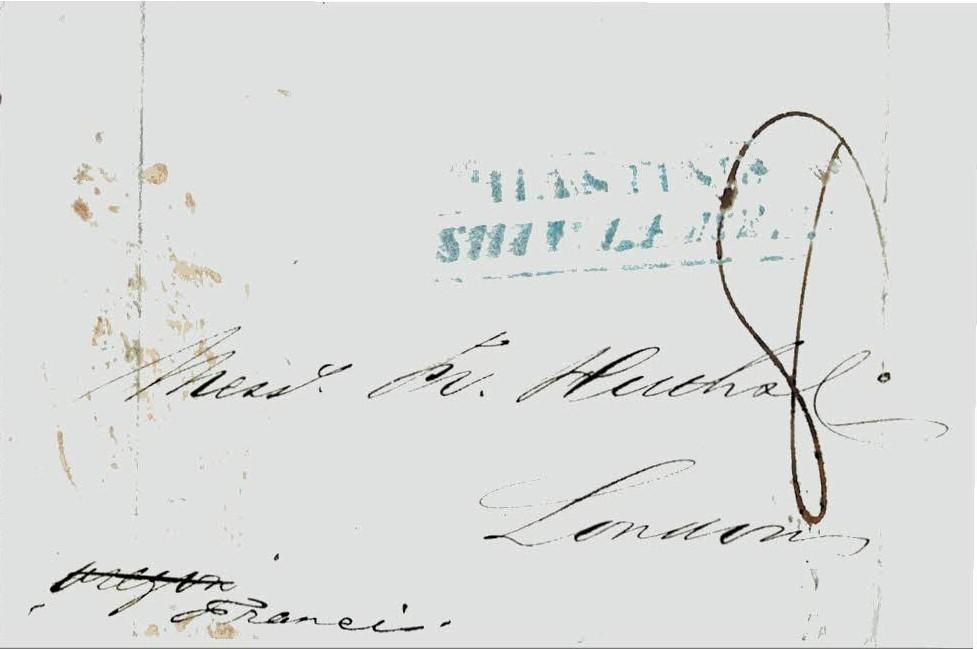 HASTINGS
SHIP LETTER
8
Messrs. Fr. Huth & Co.
London
Oregon
Francis.